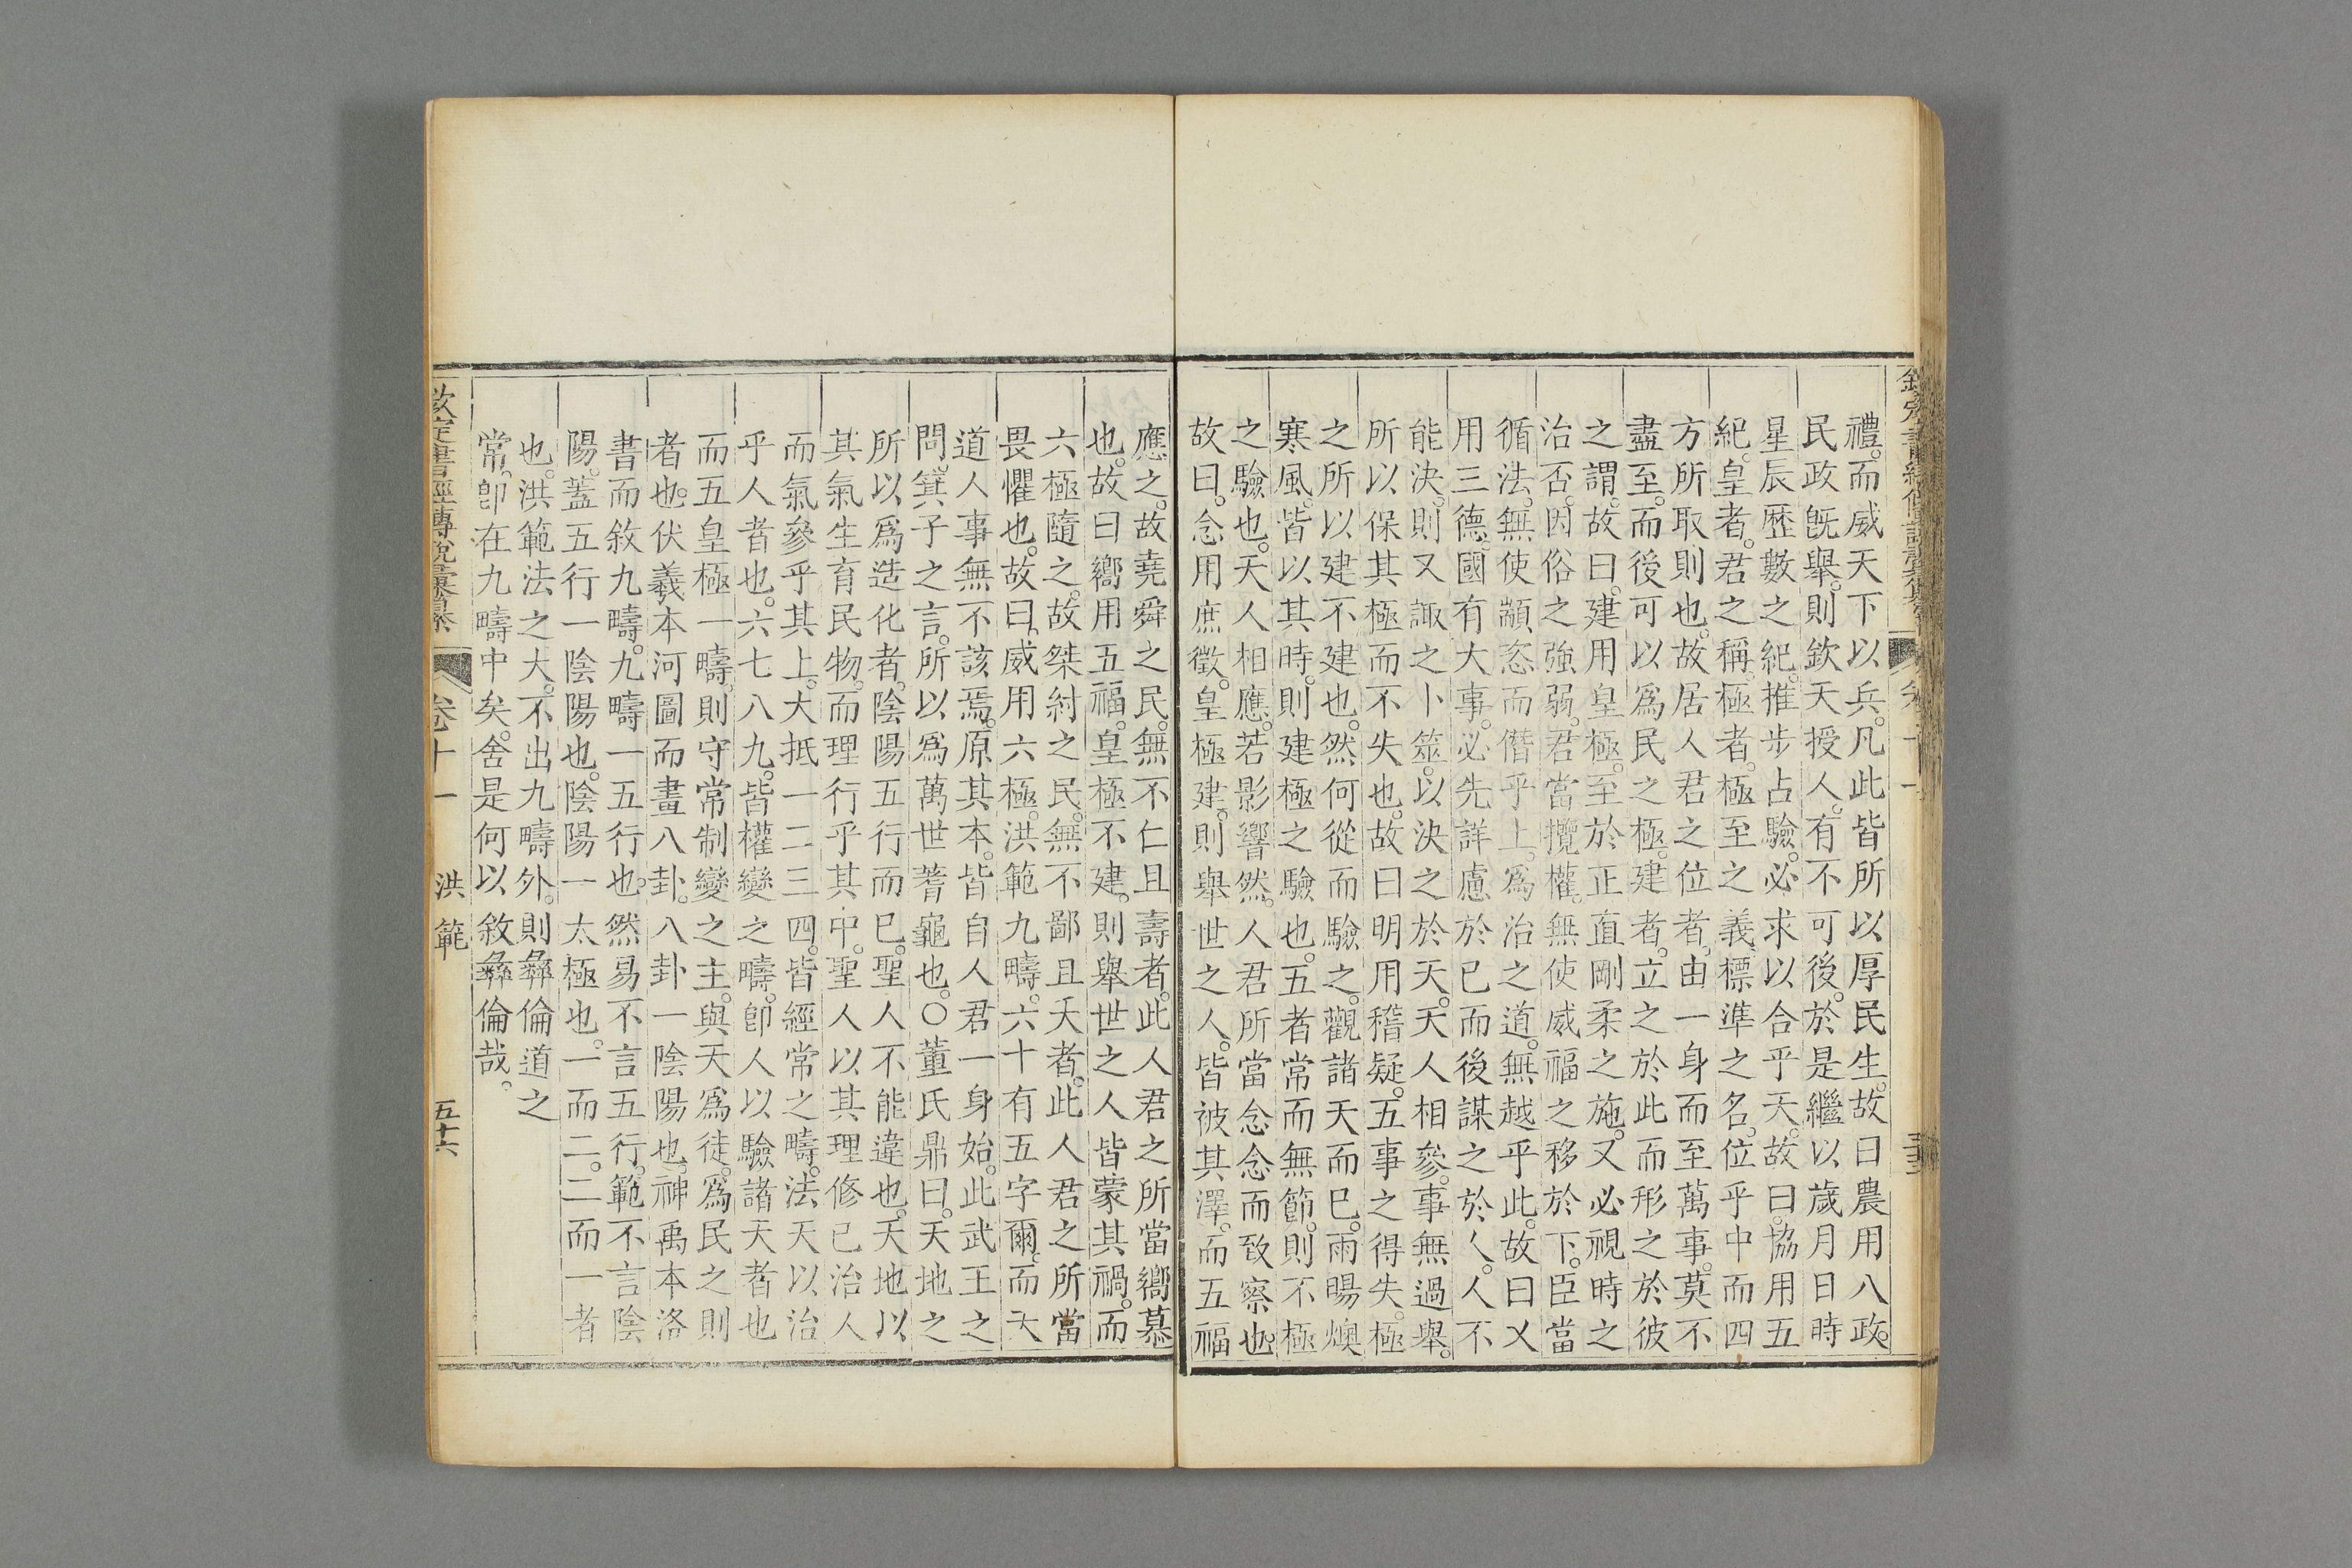 禮。而威天下以兵。凡此皆所以厚民生。故曰農用八政。
民政旣舉。則欽天授人。有不可後。於是繼以歲月日時
星辰歷數之紀。推步占驗。必求以合乎天。故曰。協用五
紀。皇者。君之稱。極者。極至之義。標準之名。位乎中而四
方所取則也。故居人君之位者。由一身而至萬事。莫不
盡至。而後可以爲民之極。建者。立之於此而形之於彼
之謂。故曰。建用皇極。至於正直剛柔之施。又必視時之
治否。因俗之強弱。君當攬權。無使威福之移於下。臣當
循法。無使顓恣而僭乎上。爲治之道。無越乎此。故曰乂
用三德。國有大事。必先詳慮於已而後謀之於人。人不
能決。則又諏之卜筮。以決之於天。天人相參。事無過舉。
所以保其極而不失也。故曰明用稽疑。五事之得失。極
之所以建不建也。然何從而驗之。觀諸天而巳。雨暘燠
寒風。皆以其時。則建極之驗也。五者常而無節。則不極
之驗也。天人相應。若影響然。人君所當念念而致察也。
故曰。念用庶徵。皇極建。則舉世之人。皆被其澤。而五福
應之。故堯舜之民。無不仁且壽者。此人君之所當嚮慕
也。故曰嚮用五福。皇極不建。則舉世之人皆蒙其禍。而
六極隨之。故桀紂之民。無不鄙且夭者。此人君之所當
畏懼也。故曰。威用六極。洪範九疇。六十有五字爾。而天
道人事無不該焉。原其本。皆自人君一身始。此武王之
問。箕子之言。所以爲萬世蓍龜也。○董氏鼎曰。天地之
所以爲造化者。陰陽五行而巳。聖人不能違也。天地以
其氣生育民物。而理行乎其中。聖人以其理修己治人
而氣參乎其上。大抵一二三四。皆經常之疇。法天以治
乎人者也。六七八九。皆權變之疇。卽人以驗諸天者也
而五皇極一疇。則守常制變之主。與天爲徒。爲民之則
者也。伏羲本河圖而畫八卦。八卦一陰陽也。神禹本洛
書而敘九疇。九疇一五行也。然易不言五行。範不言陰
陽。蓋五行一陰陽也。陰陽一太極也。一而二。二而一者
也。洪範法之大。不出九疇外。則彝倫道之
常。卽在九疇中矣。舍是何以敘彝倫哉。
欽定書經傳說彙纂 卷十一 洪範 五十六